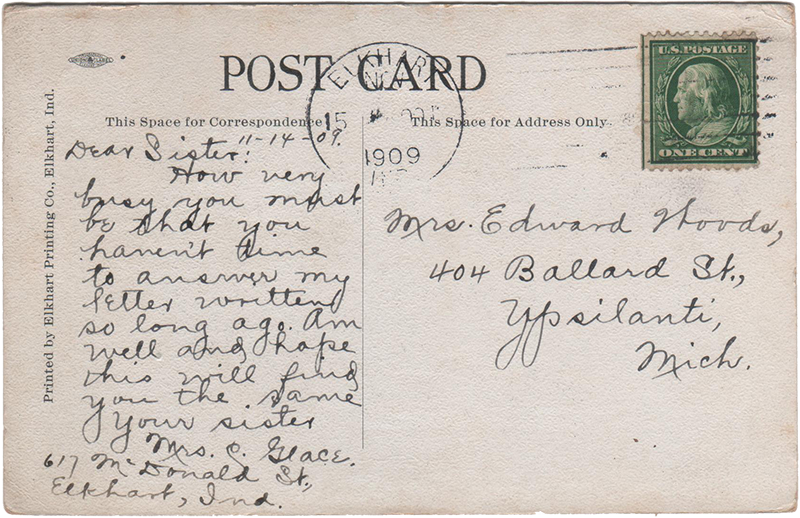 POST CARD
ELKHART
15
1909
U.S. POSTAGE
ONE CENT
This Space for Correspondence
This Space for Address Only.
Printed by Elkhart Printing Co., Elkhart, Ind.
11-14-09.
Dear Sister:
How very
busy you must
be that you
haven't time
to answer my
letter written
so long ago. Am
well and hope
this will find
you the same
Your sister
Mrs. C. Glace.
617 McDonald St.,
Elkhart, Ind.
Mrs. Edward Woods,
404 Ballard St.,
Ypsilanti,
Mich.